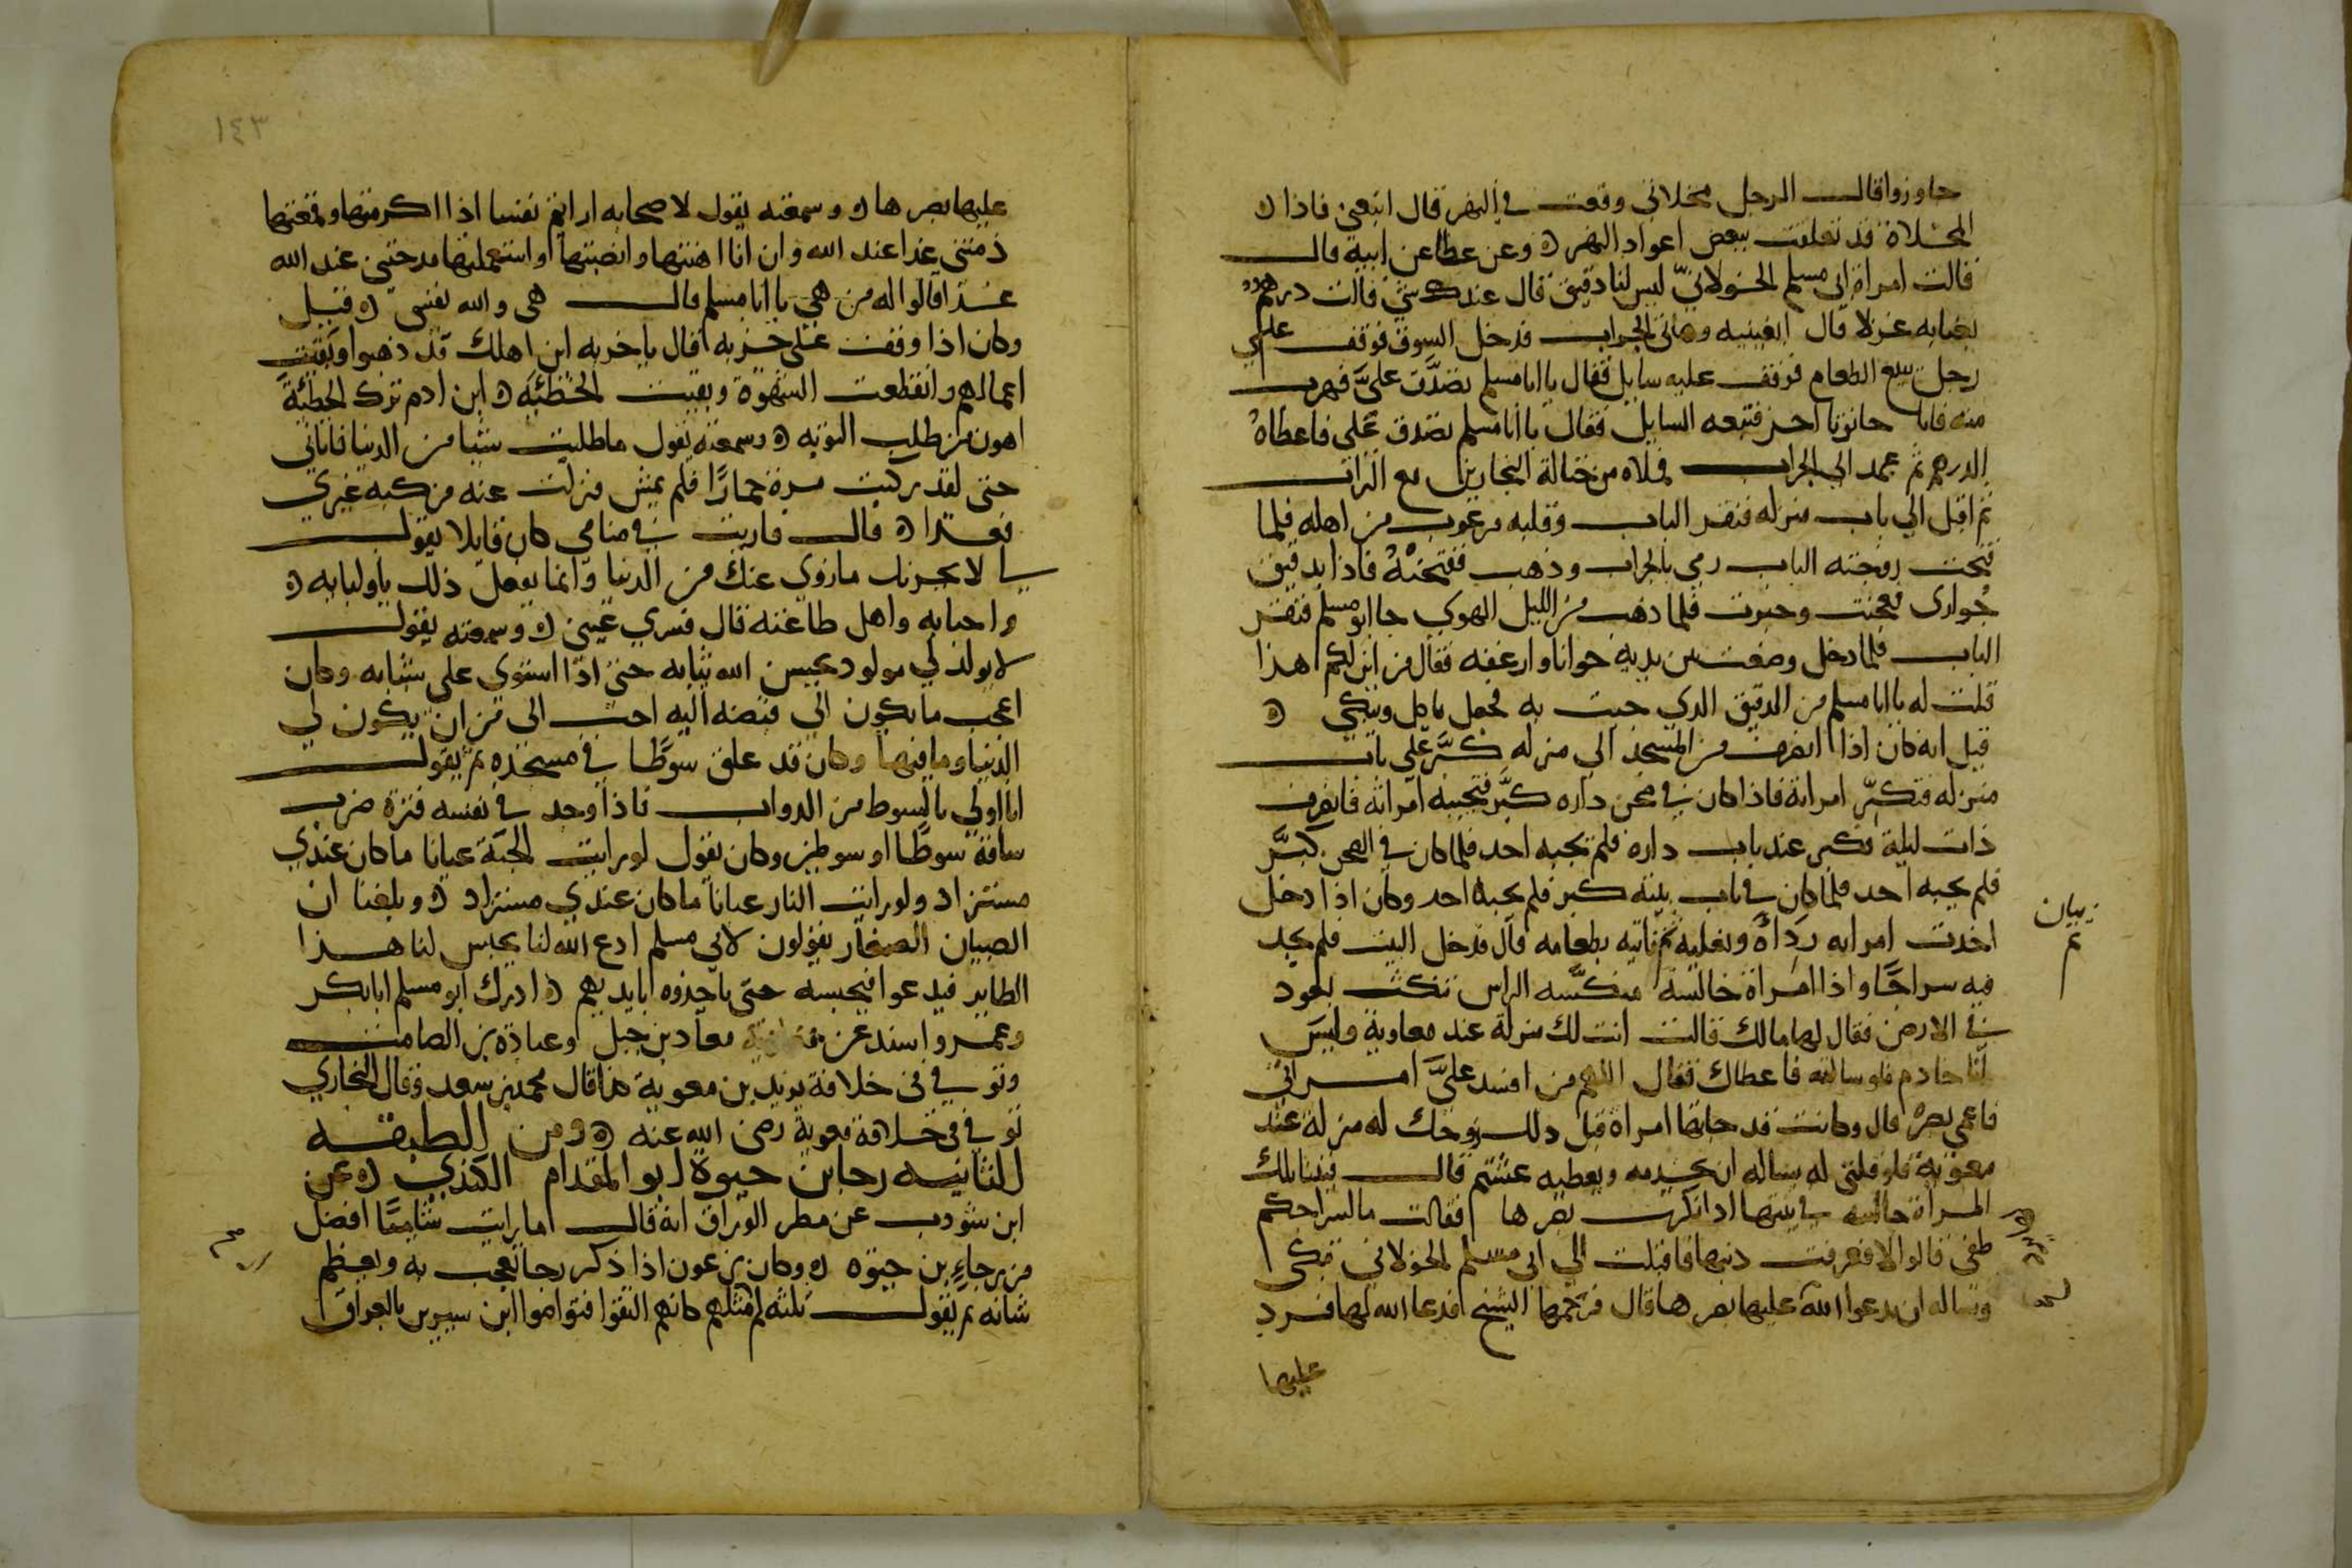 جاوزوا قال الرجل مخلاتي وقعت في النهر قال اتبعني فاذا
المخلاة قد تعلقت ببعض اعواد النهر وعن عطا عن ابيه قال
قالت امراة ابي مسلم الخولاني ليس لنا دقيق قال عندك شي قالت درهم
بعنا به غزلا قال ابغينيه وهاتي الجراب فدخل السوق فوقف على
رجل يبيع الطعام فوقف عليه سايل فقال يا ابا مسلم تصدق علي فهرب
منه فاتا حانوتا اخر فتبعه السايل فقال يا ابا مسلم تصدق علي فاعطاه
الدرهم ثم عمد الي الجراب فملاه من نخالة النجارين مع التراب
ثم اقبل الي باب منزله فنقر الباب وقلبه مرعوب من اهله فلما
فتحت زوجته الباب رمى بالجراب وذهب ففتحته فاذا بدقيق
حوارى فعجنت وخبزت فلما ذهب من الليل الهوي جا ابو مسلم فنقر
الباب فلما دخل وضعت بين يديه خوانا وارغفه فقال من اين لكم هذا
قلت له يا ابا مسلم من الدقيق الذي جيت به فجعل ياكل ويبكي
قيل انه كان اذا انصرف من المسجد الي منزله كبر على باب
منزله فتكبر امراته فاذا كان في صحن داره كبر فتجيبه امراته فانصرف
ذات ليلة فكبر عند باب داره فلم يجبه احد فلما كان في الصحن كبر
فلم يجبه احد فلما كان في باب بيته كبر فلم يجبه احد وكان اذا دخل
اخذت امراته رداه ونعليه ثم تاتيه بطعامه قال فدخل البيت فلم يجد
فيه سراجا واذا امراة جالسة منكسه الراس تنكت بعود
في الارض فقال لها مالك قالت انت لك منزلة عند معاوية وليس
لنا خادم فلو سالته فاعطاك فقال اللهم من افسد علي امراتي
فاعم بصره قال وكانت قد جاتها امراة قبل ذلك زوجك له منزلة عند
معوية فلو قلتي له يساله ان يخدمه ويعطيه عشتم قال فبينا تلك
المراة جالسه في بيتها اذ انكرت بصرها فقالت ما لسراجكم
طفي قالوا لا فعرفت ذنبها فاقبلت الي ابي مسلم الخولاني تبكي
وتساله ان يدعوا الله عليها بصرها قال فرحمها الشيخ فدعا الله لها فرد
عليها
١٤٣
عليها بصرها وسمعته يقول لاصحابه ارايتم نفسا اذا اكرمتها ونعمتها
ذمتني غدا عند الله وان انا اهنتها وانصبتها او استعملتها مدحتني عند الله
غدا قالوا له من هي يا ابا مسلم قال هي والله نفسي قيل
وكان اذا وقف على خربه قال يا خربه اين اهلك قد ذهبوا وبقيت
اعمالهم وانقطعت الشهوة وبقيت الخطئيه ابن ادم ترك الخطئة
اهون من طلب التوبه وسمعته يقول ما طلبت شيا من الدنيا فاتاني
حتى لقد ركبت مرة حمارا فلم يمش فنزلت عنه فركبه غيري
فعدا قال فاريت في منامي كان قايلا يقول
لا يحزنك ما زوي عنك من الدنيا وانما يفعل ذلك باوليايه
واحبايه واهل طاعته قال فسري عني وسمعته يقول
لا يولد لي مولود يحسن الله نباته حتى اذا استوى على شبابه وكان
اعجب ما يكون الي قبضه اليه احب الى من ان يكون لي
الدنيا وما فيها وكان قد علق سوطا في مسجده ثم يقول
انا اولى بالسوط من الدواب فاذا وجد في نفسه فترة ضرب
ساقه سوطا او سوطين وكان يقول لو رايت الجنة عيانا ما كان عندي
مستزاد ولو رايت النار عيانا ما كان عندي مستزاد وبلغنا ان
الصبيان الصغار يقولون لابي مسلم ادع الله لنا يحبس لنا هذا
الطاير فيدعوا فيحبسه حتى ياخذوه بايديهم ادرك ابو مسلم ابا بكر
وعمر واسند عن معاذ بن جبل وعبادة بن الصامت
وتوفي في خلافة يزيد بن معوية هذا قال محمد بن سعد وقال البخاري
توفي في خلافة معوية رضي الله عنه ومن الطبقه
الثانيه رجا بن حيوة ابو المقدام الكندي عن
ابن شوذب عن مطر الوراق انه قال ما رايت شاميا افضل
من رجاء بن حيوه وكان بن عون اذا ذكر رجا يعجب به ويعظم
شانه ثم يقول ثلثه لم ار مثلهم كانهم التقوا فتواصوا ابن سيرين بالعراق